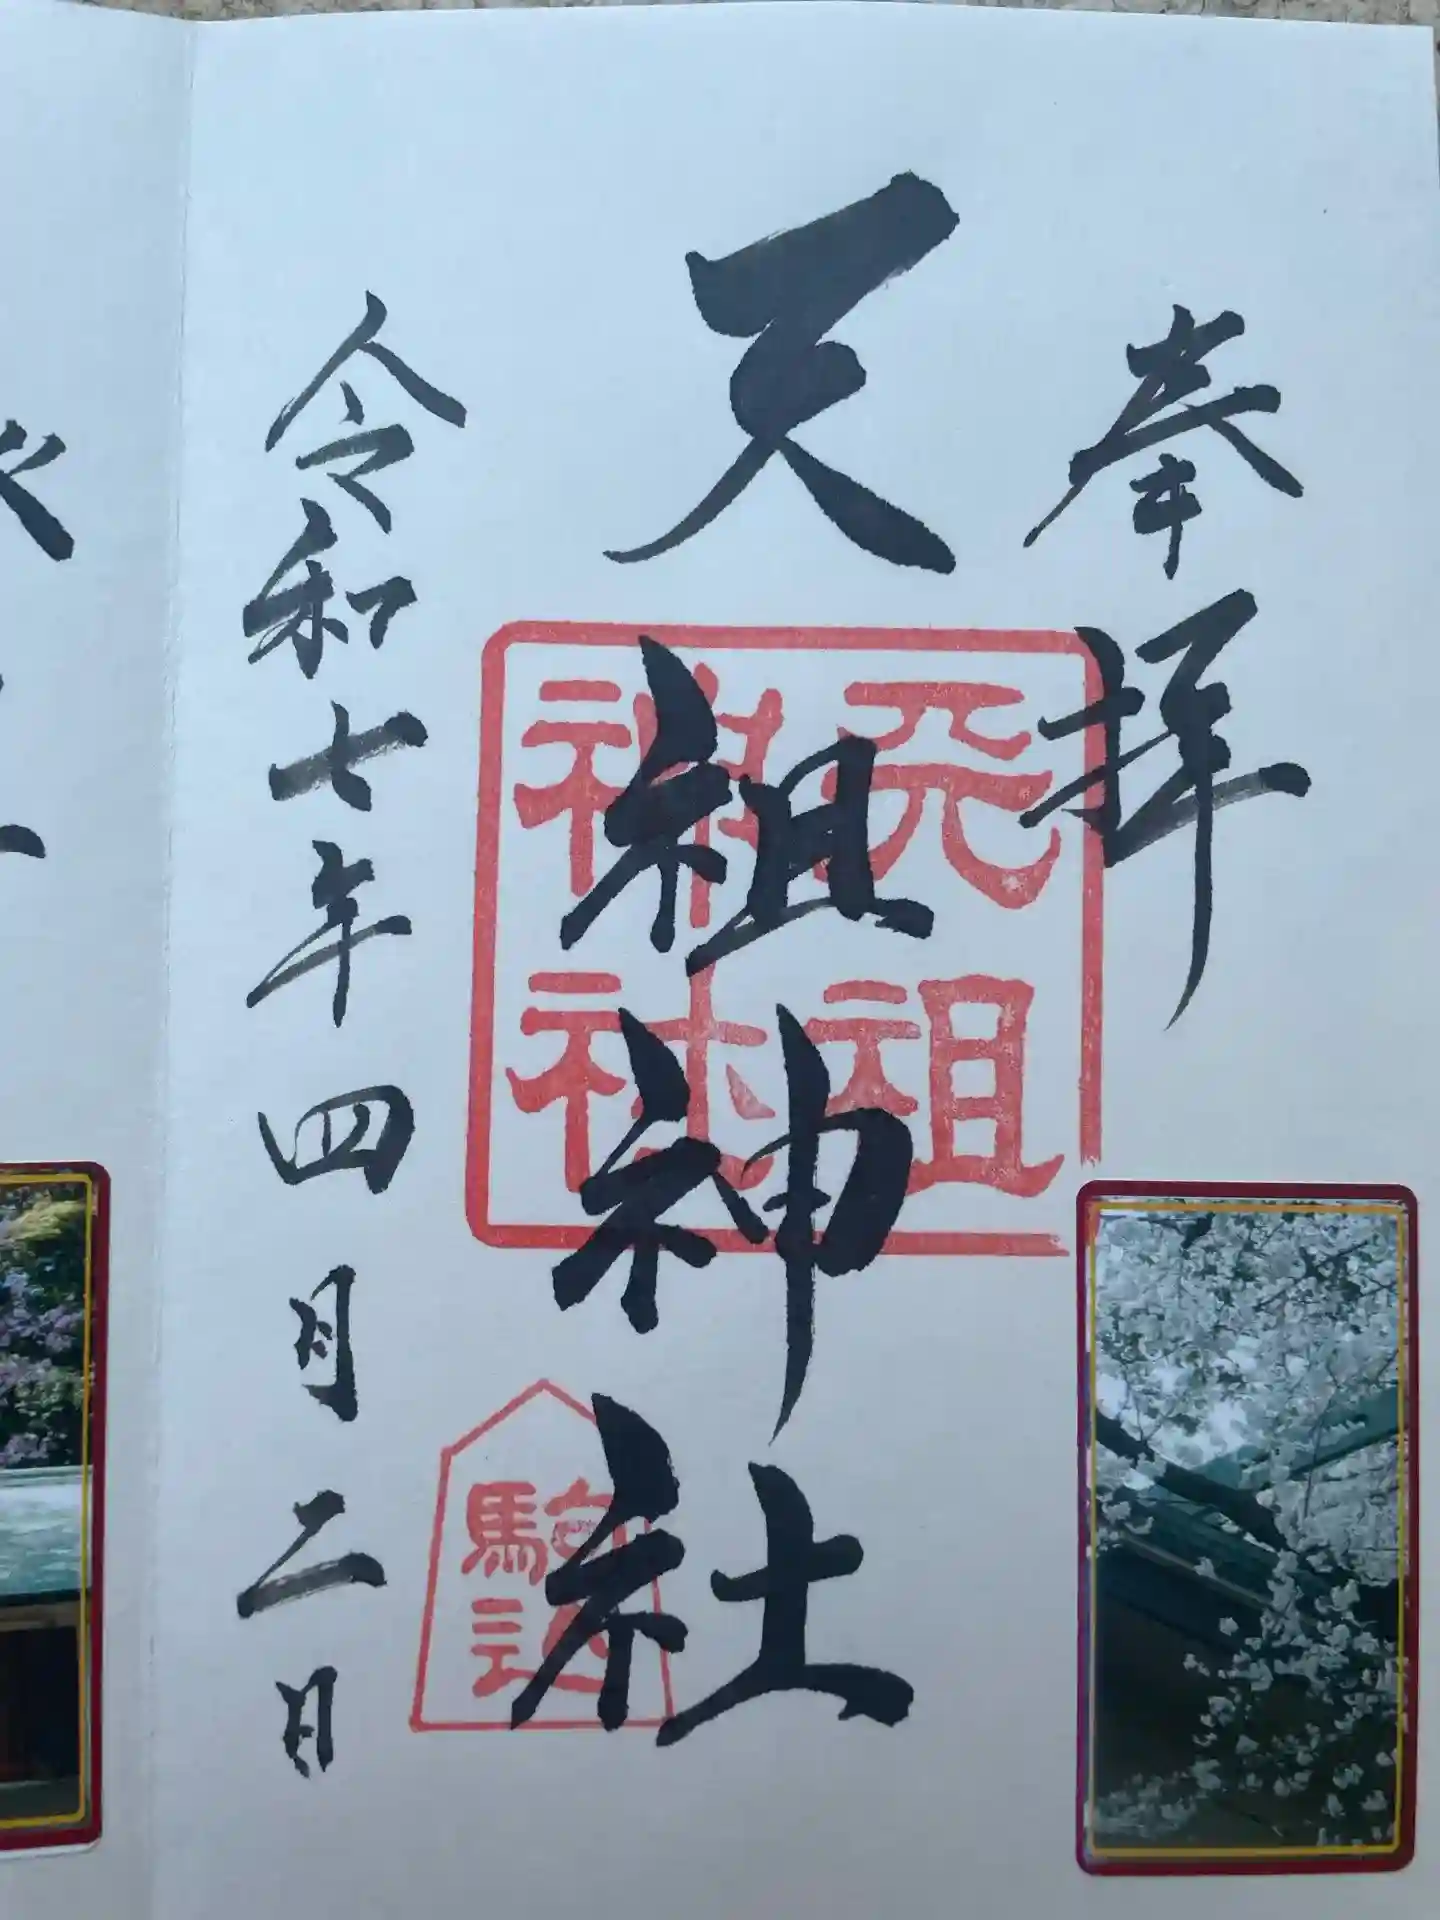 奉拝
天祖神社
天祖
神社
駒込
令和七年四月二日